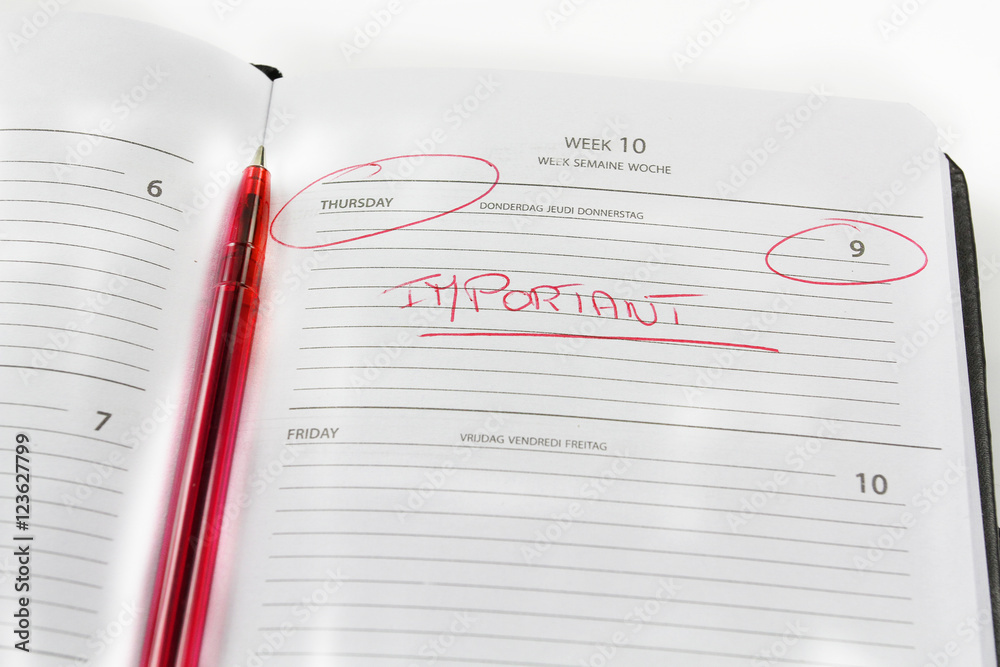 6
7
WEEK 10
WEEK SEMAINE WOCHE
THURSDAY DONDERDAG JEUDI DONNERSTAG
9
IMPORTANT
FRIDAY VRIJDAG VENDREDI FREITAG
10
Adobe Stock | #123627799